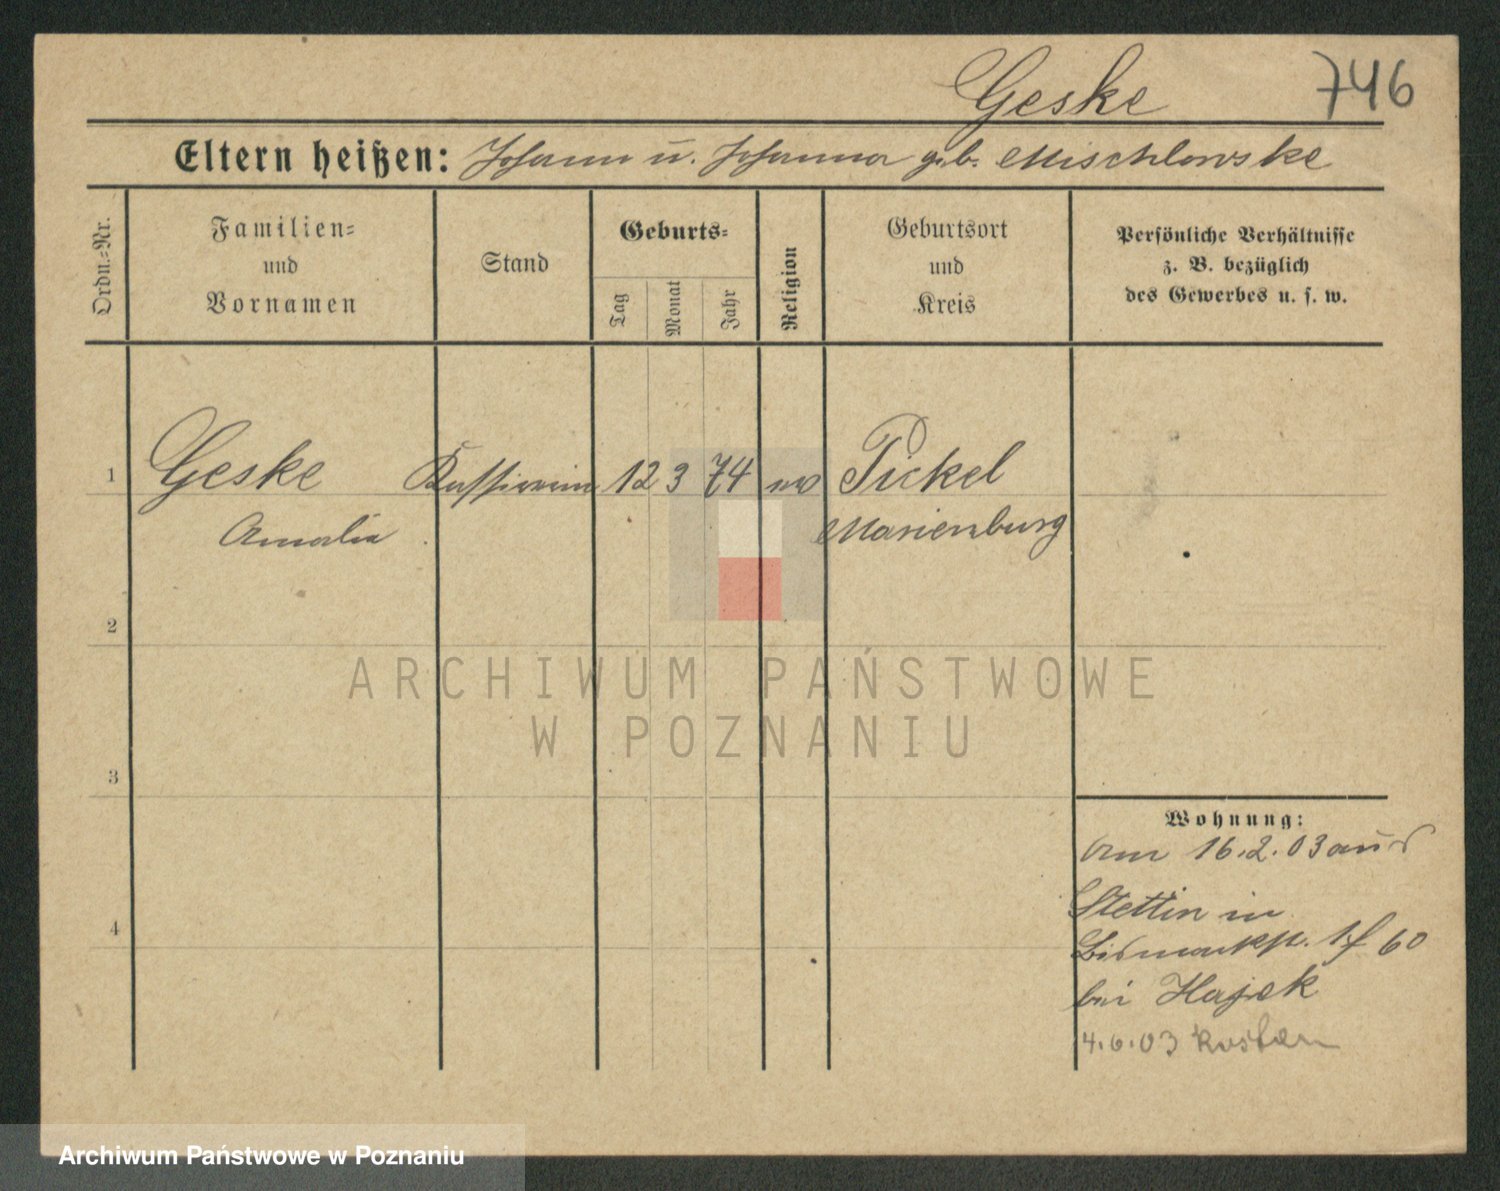 Geske 746
Eltern heißen: Johann u. Johanna geb. Mischlowske
Ordn.=Nr.
Familien=
und
Vornamen
Stand
Geburts=
Tag
Monat
Jahr
Religion
Geburtsort
und
Kreis
Persönliche Verhältnisse
z. B. bezüglich
des Gewerbes u. s. w.
1 Geske 12 3 74 Pickel
Amalia Marienburg
2
3
4
Wohnung:
Am 16.2.03 aus
Stettin in
60
bei Hajek
4.6.03 Kosten
ARCHIWUM PAŃSTWOWE
W POZNANIU
Archiwum Państwowe w Poznaniu